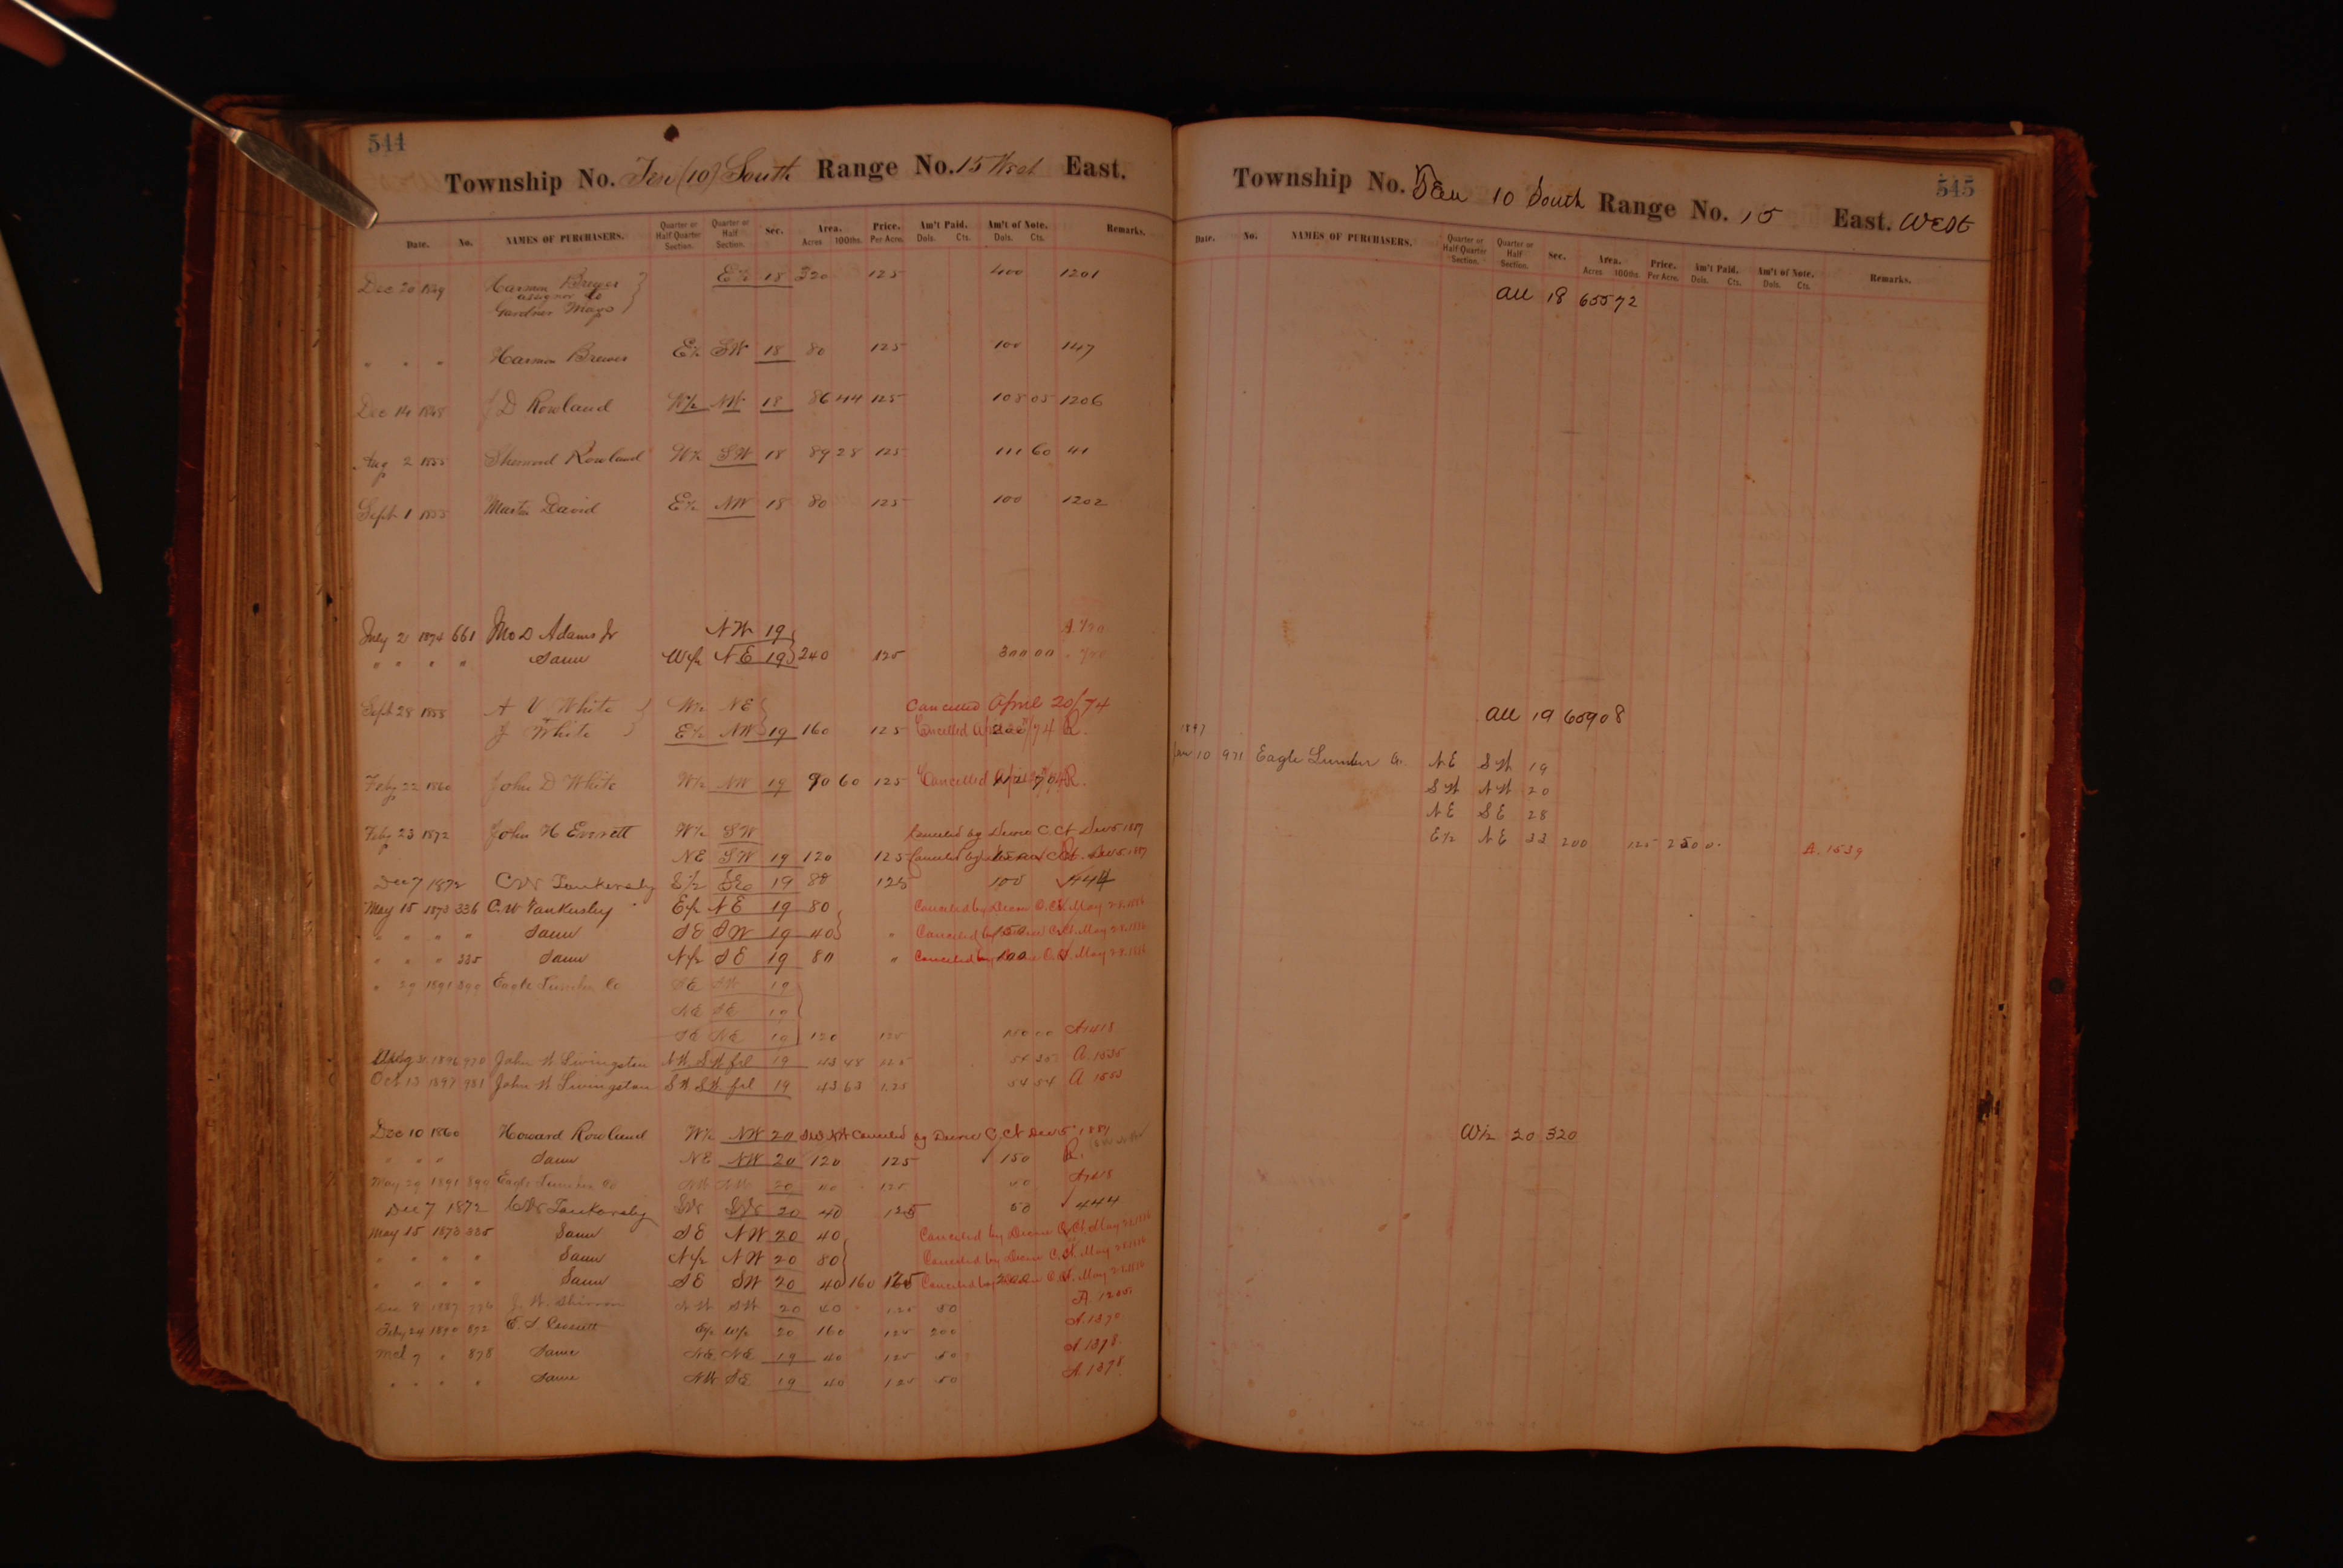 544
Township No. Ten (10) South Range No. 15 West East.
Date. No. NAMES OF PURCHASERS. Quarter or Half Quarter Section. Quarter or Half Section. Sec. Area. Acres 100ths. Price. Per Acre. Am't Paid. Dols. Cts. Am't of Note. Dols. Cts. Remarks.
Dec 20 1859 Harmon Brewer E½ 18 320 125 400 1201
assignor to
Gardner Mayo
" " " Harmon Brewer E½ SW 18 80 125 100 147
Dec 14 J D Rowland W½ NW 18 86 44 125 108 05 1206
Aug 2 1855 Sherwood Rowland W½ SW 18 89 28 125 111 60 41
Sept 1 1855 Martin David E½ NW 18 80 125 100 1202
July 2 1874 661 Jno D Adams Jr NW 19
" " " " Same W½ NE 19 240 125 300 00
Sept 28 1858 A V White W½ NE Cancelled April 20/74
J White E½ NW 19 160 125 Cancelled R.
Feby 22 1860 John D White W½ NW 19 90 60 125 Cancelled R.
Feby 23 1872 John H Everett W½ SW Canceled by Decree C. Ct Dec 5 1887
NE SW 19 120 125 Canceled by Dec 5 1887
Dec 7 1872 CW Tankersley S½ SE 19 80 125 100 444
May 15 1873 336 C. W Tankersley E½ NE 19 80 Canceled by Decree C. Ct. May 28. 1886
" " " " Same SE SW 19 40 " Canceled by 150 May 28. 1886
" " " 335 Same N½ SE 19 80 " Canceled by 100 May 28. 1886
" 29 1891 890 Eagle Lumber Co SE SW 19
NE SE 19
SE NE 19 120 125 150 00 A 1418
31. 1896 970 John W Livingston NW SW frl 19 43 48 125 54 35 A. 1535
Oct 13 1897 981 John W Livingston SW SW. frl 19 43 63 1.25 54 54 A 1553
Dec 10 1860 Howard Rowland W½ NW 20 SW NW Canceled by Decree C. Ct Dec 5" 1887
" " " Same NE NW 20 120 125 150 R.
May 29 1891 890 Eagle Lumber Co 20 40 125 A 1418
Dec 7 1872 CW Tankersley SW SW 20 40 125 50 444
May 15 1873 335 Same SE NW 20 40 Canceled by Decree C. Ct. May 28. 1886
" " " " Same N½ NW 20 80 Canceled by Decree C. Ct. May 28. 1886
" " " " Same SE SW 20 40 160 125 Canceled by 200 May 28. 1886
Dec 8 1887 776 J. W. NW SW 20 40 1.25 50 A. 1205
Feby 24 1890 872 E½ W½ 20 160 125 200 A 1370
Mch 7 " 878 Same NE NE 19 40 125 50 A. 1378.
" " " " Same NW SE 19 40 125 50 A. 1378
Township No. Ten 10 South Range No. 15 East. West 545
Date. No. NAMES OF PURCHASERS. Quarter or Half Quarter Section. Quarter or Half Section. Sec. Area. Acres 100ths. Price. Per Acre. Am't Paid. Dols. Cts. Am't of Note. Dols. Cts. Remarks.
All 18 655 72
All 19 659 08
1897
Jan 10 971 Eagle Lumber Co. NE SW 19
SW NW 20
NE SE 28
E½ NE 33 200 125 250 0. A. 1539
W½ 20 320